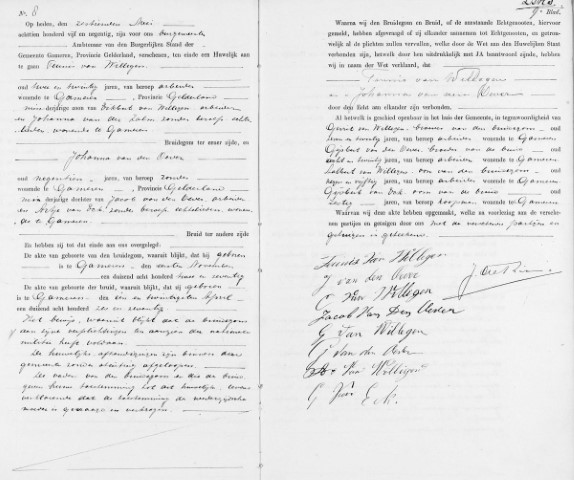 No. 8
Op heden, den zestienden Mei
achttien honderd vijf en negentig, zijn voor ons burgemeester
Ambtenaar van den Burgerlijken Stand der
Gemeente Gameren, verschenen, ten einde een Huwelijk aan
te gaan Teunis van Willigen
oud twee en twintig jaren, van beroep arbeider
wonende te Gameren, Provincie Gelderland
minderjarige zoon van Dirk van Willigen arbeider
en Johanna van der zonder beroep echte-
lieden wonende te Gameren
Bruidegom ter eener zijde, en
Johanna van den Oever
oud negentien jaren, van beroep zonder
wonende te Gameren, Provincie Gelderland
minderjarige dochter van Jacob van den Oever arbeider
en van zonder beroep echtelieden, wonen-
de te Gameren
Bruid ter andere zijde
En hebben zij tot dat einde aan ons overgelegd:
De akte van geboorte van den bruidegom, waaruit blijkt, dat hij geboren
is te Gameren den November
een duizend acht honderd twee en zeventig
De akte van geboorte der bruid, waaruit blijkt, dat zij geboren
is te Gameren, den een en twintigsten April
een duizend acht honderd zes en zeventig
Het bewijs, waaruit blijkt dat de bruidegom
aan zijne verplichtingen ten aanzien der nationale
militie heeft voldaan.
De huwelijks afkondigingen zijn binnen deze
gemeente zonder stuiting afgeloopen.
De vader van den bruidegom en die der bruid
gaven hunne toestemming tot dit huwelijk,
verklarende dat de toestemming der wederzijdsche
moeders is gevraagd en verkregen.
Blad.
Waarna wij den Bruidegom en Bruid, of de aanstaande Echtgenooten, hiervoor
gemeld, hebben afgevraagd of zij elkander aannemen tot Echtgenooten, en getrou-
welijk al de plichten zullen vervullen, welke door de Wet aan den Huwelijken Staat
verbonden zijn, hetwelk door hen uitdrukkelijk met JA beantwoord zijnde, hebben
wij in naam der Wet verklaard, dat
Teunis van Willigen
en Johanna van den Oever
door den Echt aan elkander zijn verbonden.
Al hetwelk is geschied openbaar in het huis der Gemeente, in tegenwoordigheid van
Gerrit van Willigen, broeder van den bruidegom oud
jaren, van beroep arbeider wonende te Gameren
Gijsbert van den Oever broeder van de bruid oud
acht en twintig jaren, van beroep arbeider wonende te Gameren
van Willigen oom van den bruidegom oud
vijftig jaren, van beroep arbeider wonende te Gameren
Gijsbert van Eck oom van de bruid oud
jaren, van beroep wonende te Gameren
Waarvan wij deze akte hebben opgemaakt, welke na voorlezing aan de verschene-
ne partijen en getuigen door ons met de verschenen partijen en
getuigen is geteekend.
Teunis van Willigen
J van den Oever
D van Willigen
Jacob Van Den Oever
G van Willigen
G van den Oever
van Willigen
G van Eck